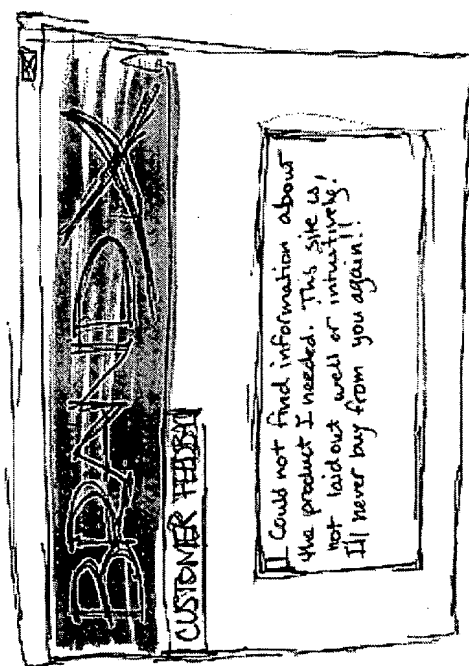 BRAND X
CUSTOMER FEEDBACK
I could not find information about
the product I needed. This site is
not laid out well or intuitively.
I'll never buy from you again!!